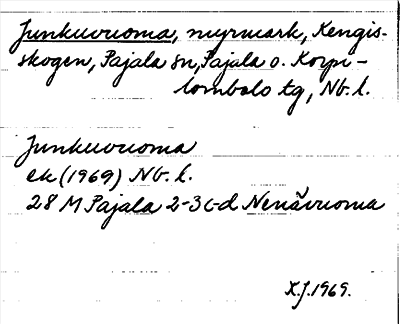 Junkuvuoma, myrmark, Kengis-
skogen, Pajala sn, Pajala o. Korpi-
lombolo tg, Nb. l.
Junkuvuoma
ek (1969) Nb. l.
28 M Pajala 2-3 c-d Nenävuoma
X.J. 1969.